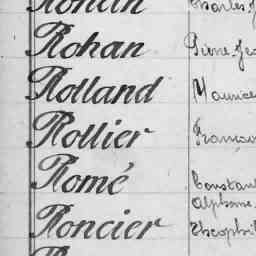 Roncin Charles
Rohan Pierre
Rolland Maurice
Rollier François
Romé Constant
Alphonse
Roncier Théophile